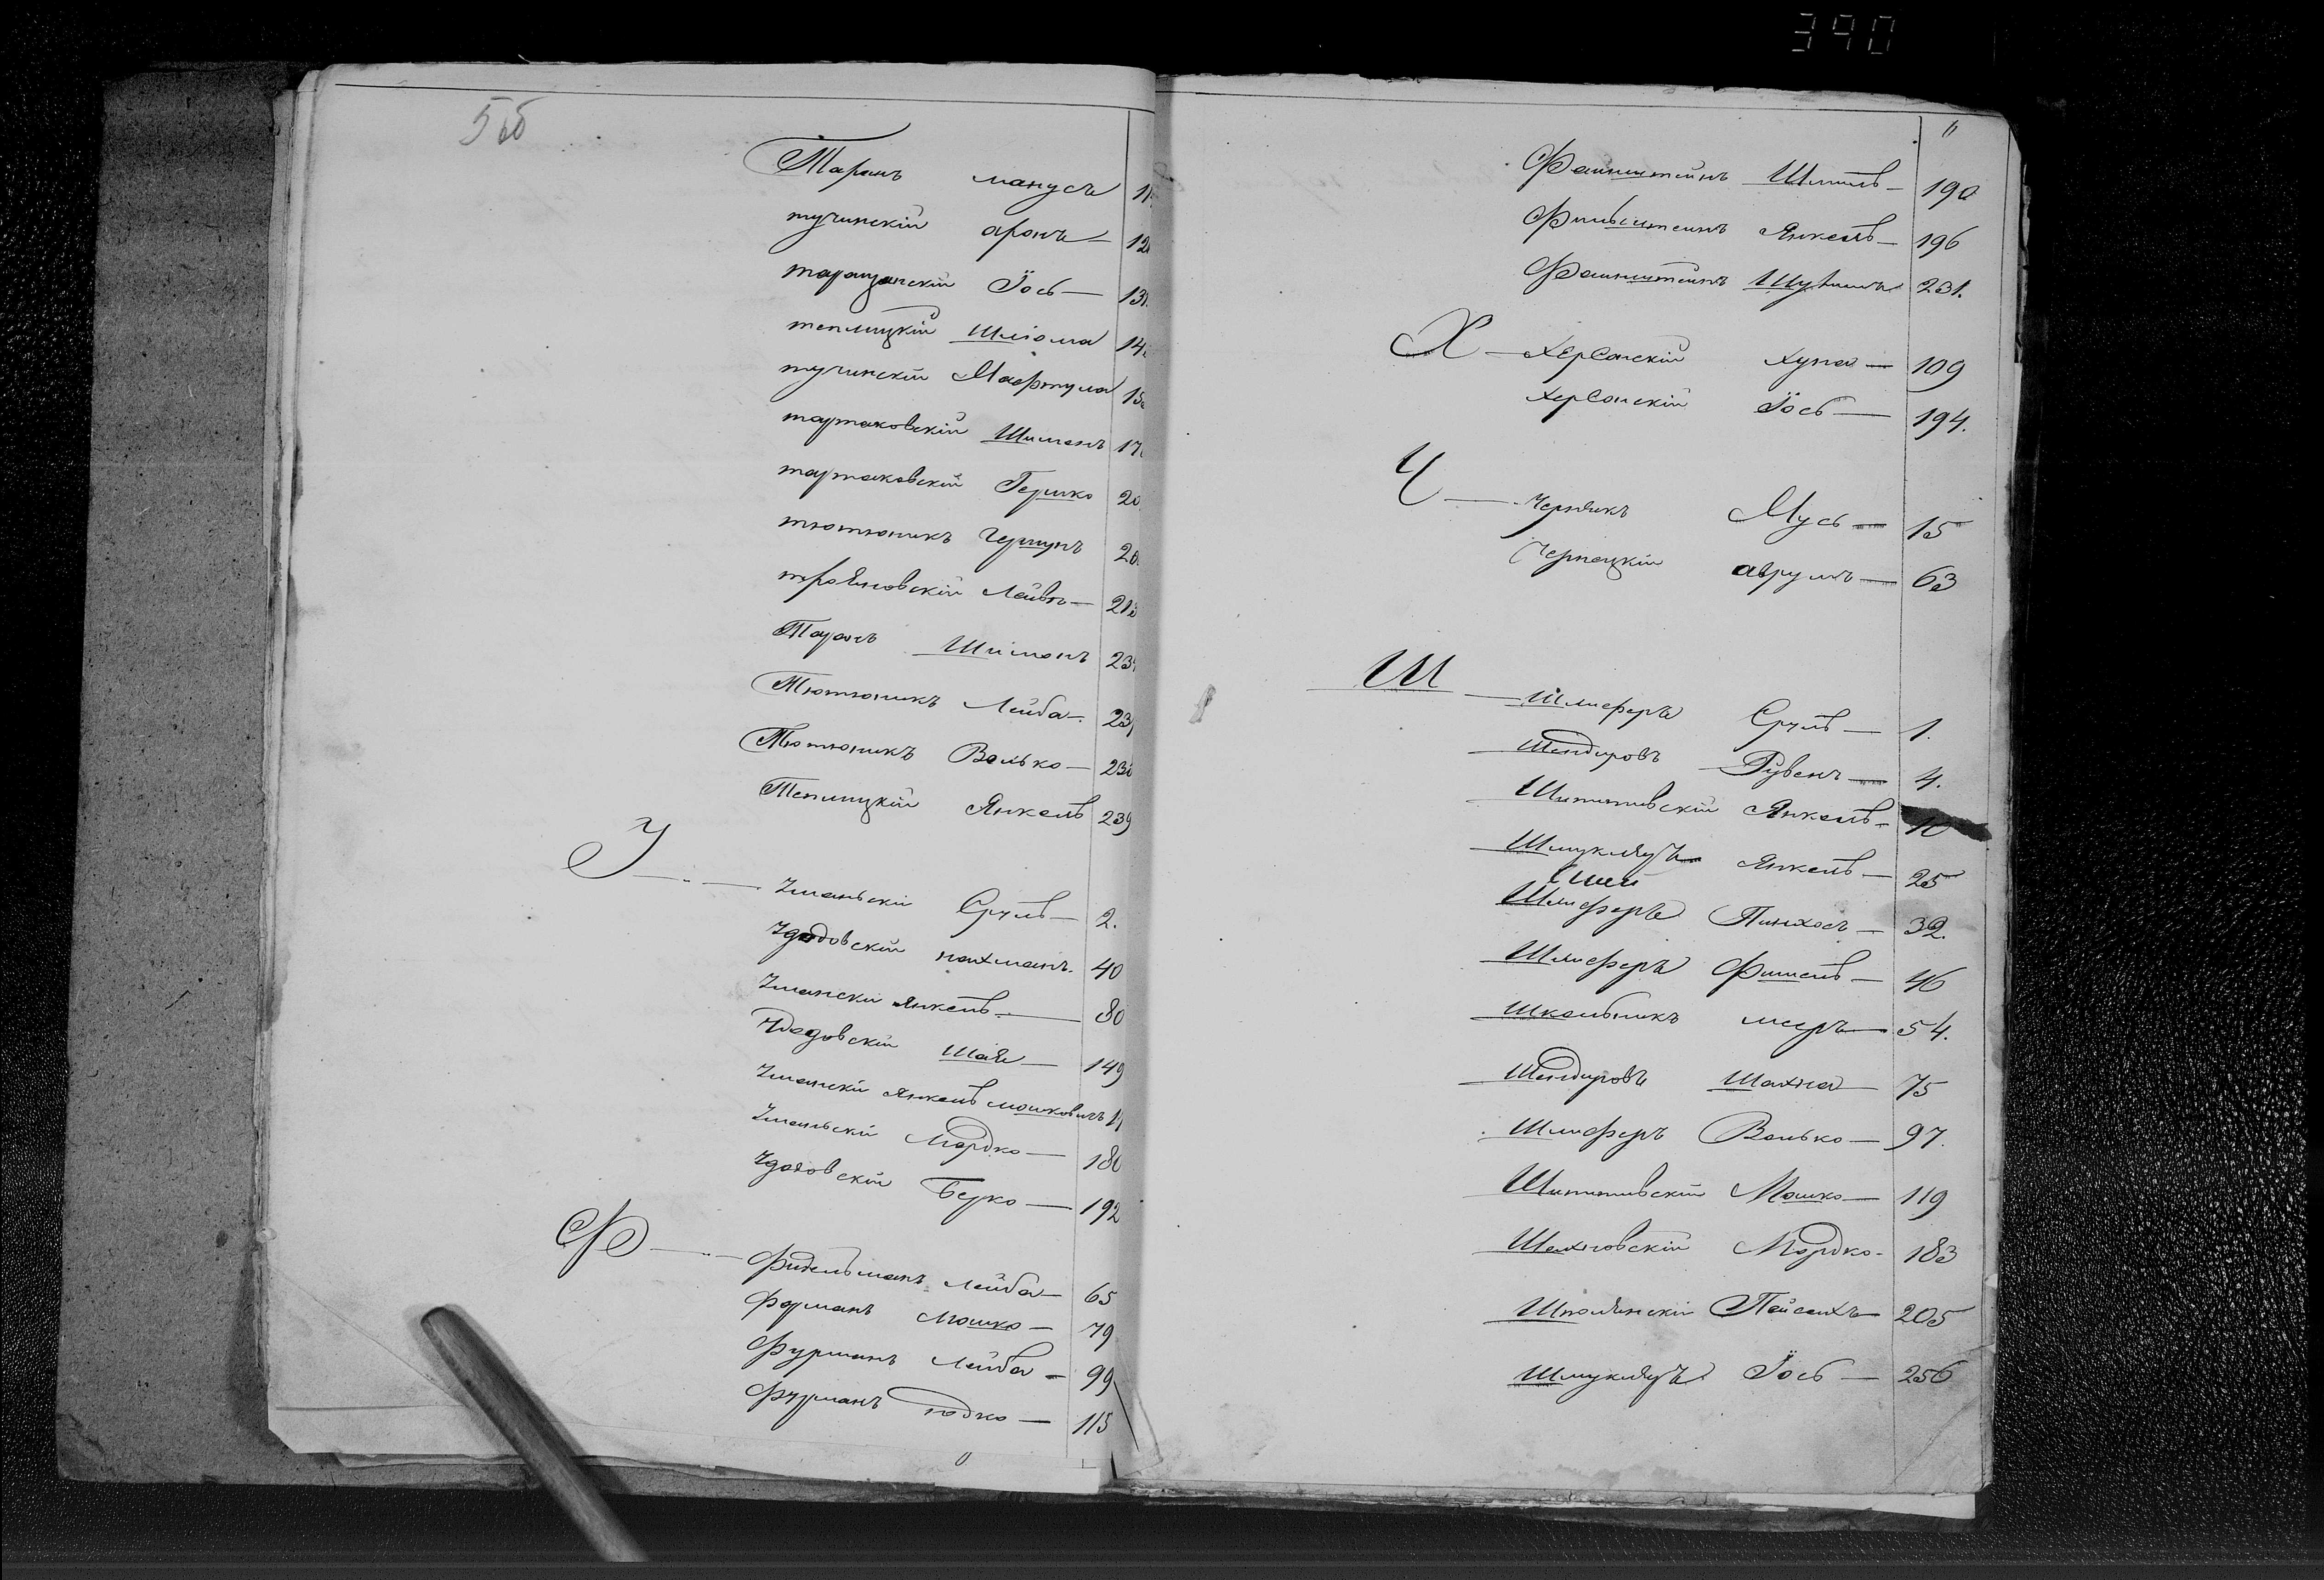 390
Таранъ Манусъ
тучинскій аронъ —
таращанскій Іось — 131.
теплицкій Шлiома
тучинскій
тартаковскій Шименъ
тартаковскій Гершко
тютюникъ Гершунъ
трояновскій Лейвъ —
Таранъ Шимонъ
Тютюникъ Лейба —
Тютюникъ Волько —
Теплицкій Янкель 239
У — Уманьскій Сруль — 2.
Удодовскій нахманъ. 40
Уманскій Янкель — 80
Удодовскій Шая — 149
Уманскій Янкель мошковичъ
Уманьскій Мордко — 180
Удодовскій Берко — 192
Ф — Фидельманъ Лейба — 65
Форманъ Мошко — 79
Фурманъ Лейба — 99
Фурманъ Юдко — 115
Файнштейнъ Шмиль — 190
Янкель — 196
Файнштейнъ 231.
Х — Херсонскій Хуна — 109
Херсонскій Іось — 194.
Ч — Чернякъ Мусь — 15
Чернецкій аврумъ — 63
Ш — Шлиферъ Сруль — 1.
Шендировъ Рувенъ — 4.
Шипитивскій Янкель — 10
Шмуклеръ Янкель — 25
Шлиферъ Пинхосъ — 32.
Шлиферъ Фишель — 46
Школьникъ меиръ — 54.
Шендировъ Шахна — 75
Шлиферъ Волько — 97.
Шипитивскій Мошко — 119
Шахновскій Мордко — 183
Шполянскій Пейсахъ — 205
Шмуклеръ Іось — 256